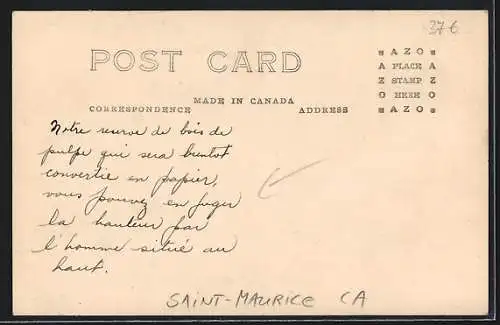 37 €
POST CARD
■ A Z O ■
A PLACE A
Z STAMP Z
O HERE O
■ A Z O ■
CORRESPONDENCE MADE IN CANADA ADDRESS
Notre reserve de bois de
pulpe qui sera bientot
convertie en papier,
vous pouvez en juger
la hauteur par
l'homme situé au
haut.
SAINT-MAURICE CA